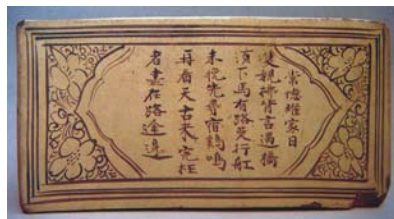 常憶離家日
雙親拂背言過橋
須下馬有路莫行舡
未晚先尋宿鷄鳴
再看天古來冤枉
者盡在路途邊